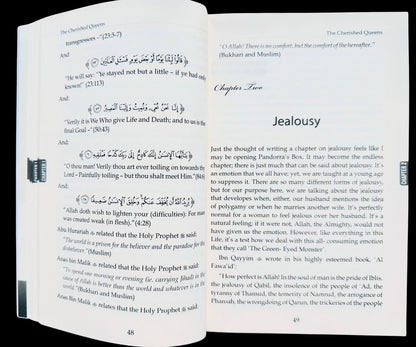 The Cherished Queens
transgressors –"(23:5-7)
And:
"He will say: "Ye stayed not but a little – if ye had only known!"
(23:113)
And:
إِنَّا نَحْنُ نُحْيِي وَنُمِيتُ وَإِلَيْنَا الْمَصِيرُ
"Verily it is We Who give Life and Death; and to us is the
final Goal –" (50:43)
And:
يَا أَيُّهَا الْإِنْسَانُ إِنَّكَ كَادِحٌ إِلَى رَبِّكَ كَدْحًا فَمُلَاقِيهِ
"O thou man! Verily thou art ever toiling on towards thy
Lord – Painfully toiling – but thou shalt meet Him."
And:
يُرِيدُ اللَّهُ أَنْ يُخَفِّفَ عَنْكُمْ وَخُلِقَ الْإِنْسَانُ ضَعِيفًا
"Allah doth wish to lighten your (difficulties): For man
was created weak (in flesh)."(4:28)
Abu Hurairah related that the Holy Prophet said:
"The world is a prison for the believer and the paradise for the
disbeliever." (Muslim)
Anas bin Malik relates that the Holy Prophet said:
"To spend one morning or evening (i.e. carrying Jihad) in the
cause of Allah is better than the world and whatever is in the
world." (Bukhari and Muslim)
Anas bin Malik relates that the Holy Prophet said:
48
The Cherished Queens
"O Allah! There is no comfort, but the comfort of the hereafter."
(Bukhari and Muslim)
Chapter Two
Jealousy
Just the thought of writing a chapter on jealousy feels like I
may be opening Pandora's Box. It may become the endless
chapter; there is just much that can be said about jealousy. It's
an emotion that we all have; yet, we are taught at a young age
to suppress it. There are so many different forms of jealousy,
but for our purpose here, we are talking about the jealousy
that develops when, either, our husband mentions the idea
of polygamy or when he marries another wife. It's perfectly
normal for a woman to feel jealous over her husband. It's a
natural feeling; if it were not, Allah, the Almighty, would not
have given us the emotion. However, like everything in this
life, it's a test how we deal with this all- consuming emotion
that they call 'The Green- Eyed Monster'.
Ibn Qayyim wrote in his highly esteemed book, 'Al
Fawa'id':
"How perfect is Allah! In the soul of man is the pride of Iblis,
the jealousy of Qabil, the insolence of the people of 'Ad, the
tyranny of Thamud, the temerity of Namrud, the arrogance of
Pharoah, the wrongdoing of Qarun, the trickeries of the people
49
CHAPTER 2